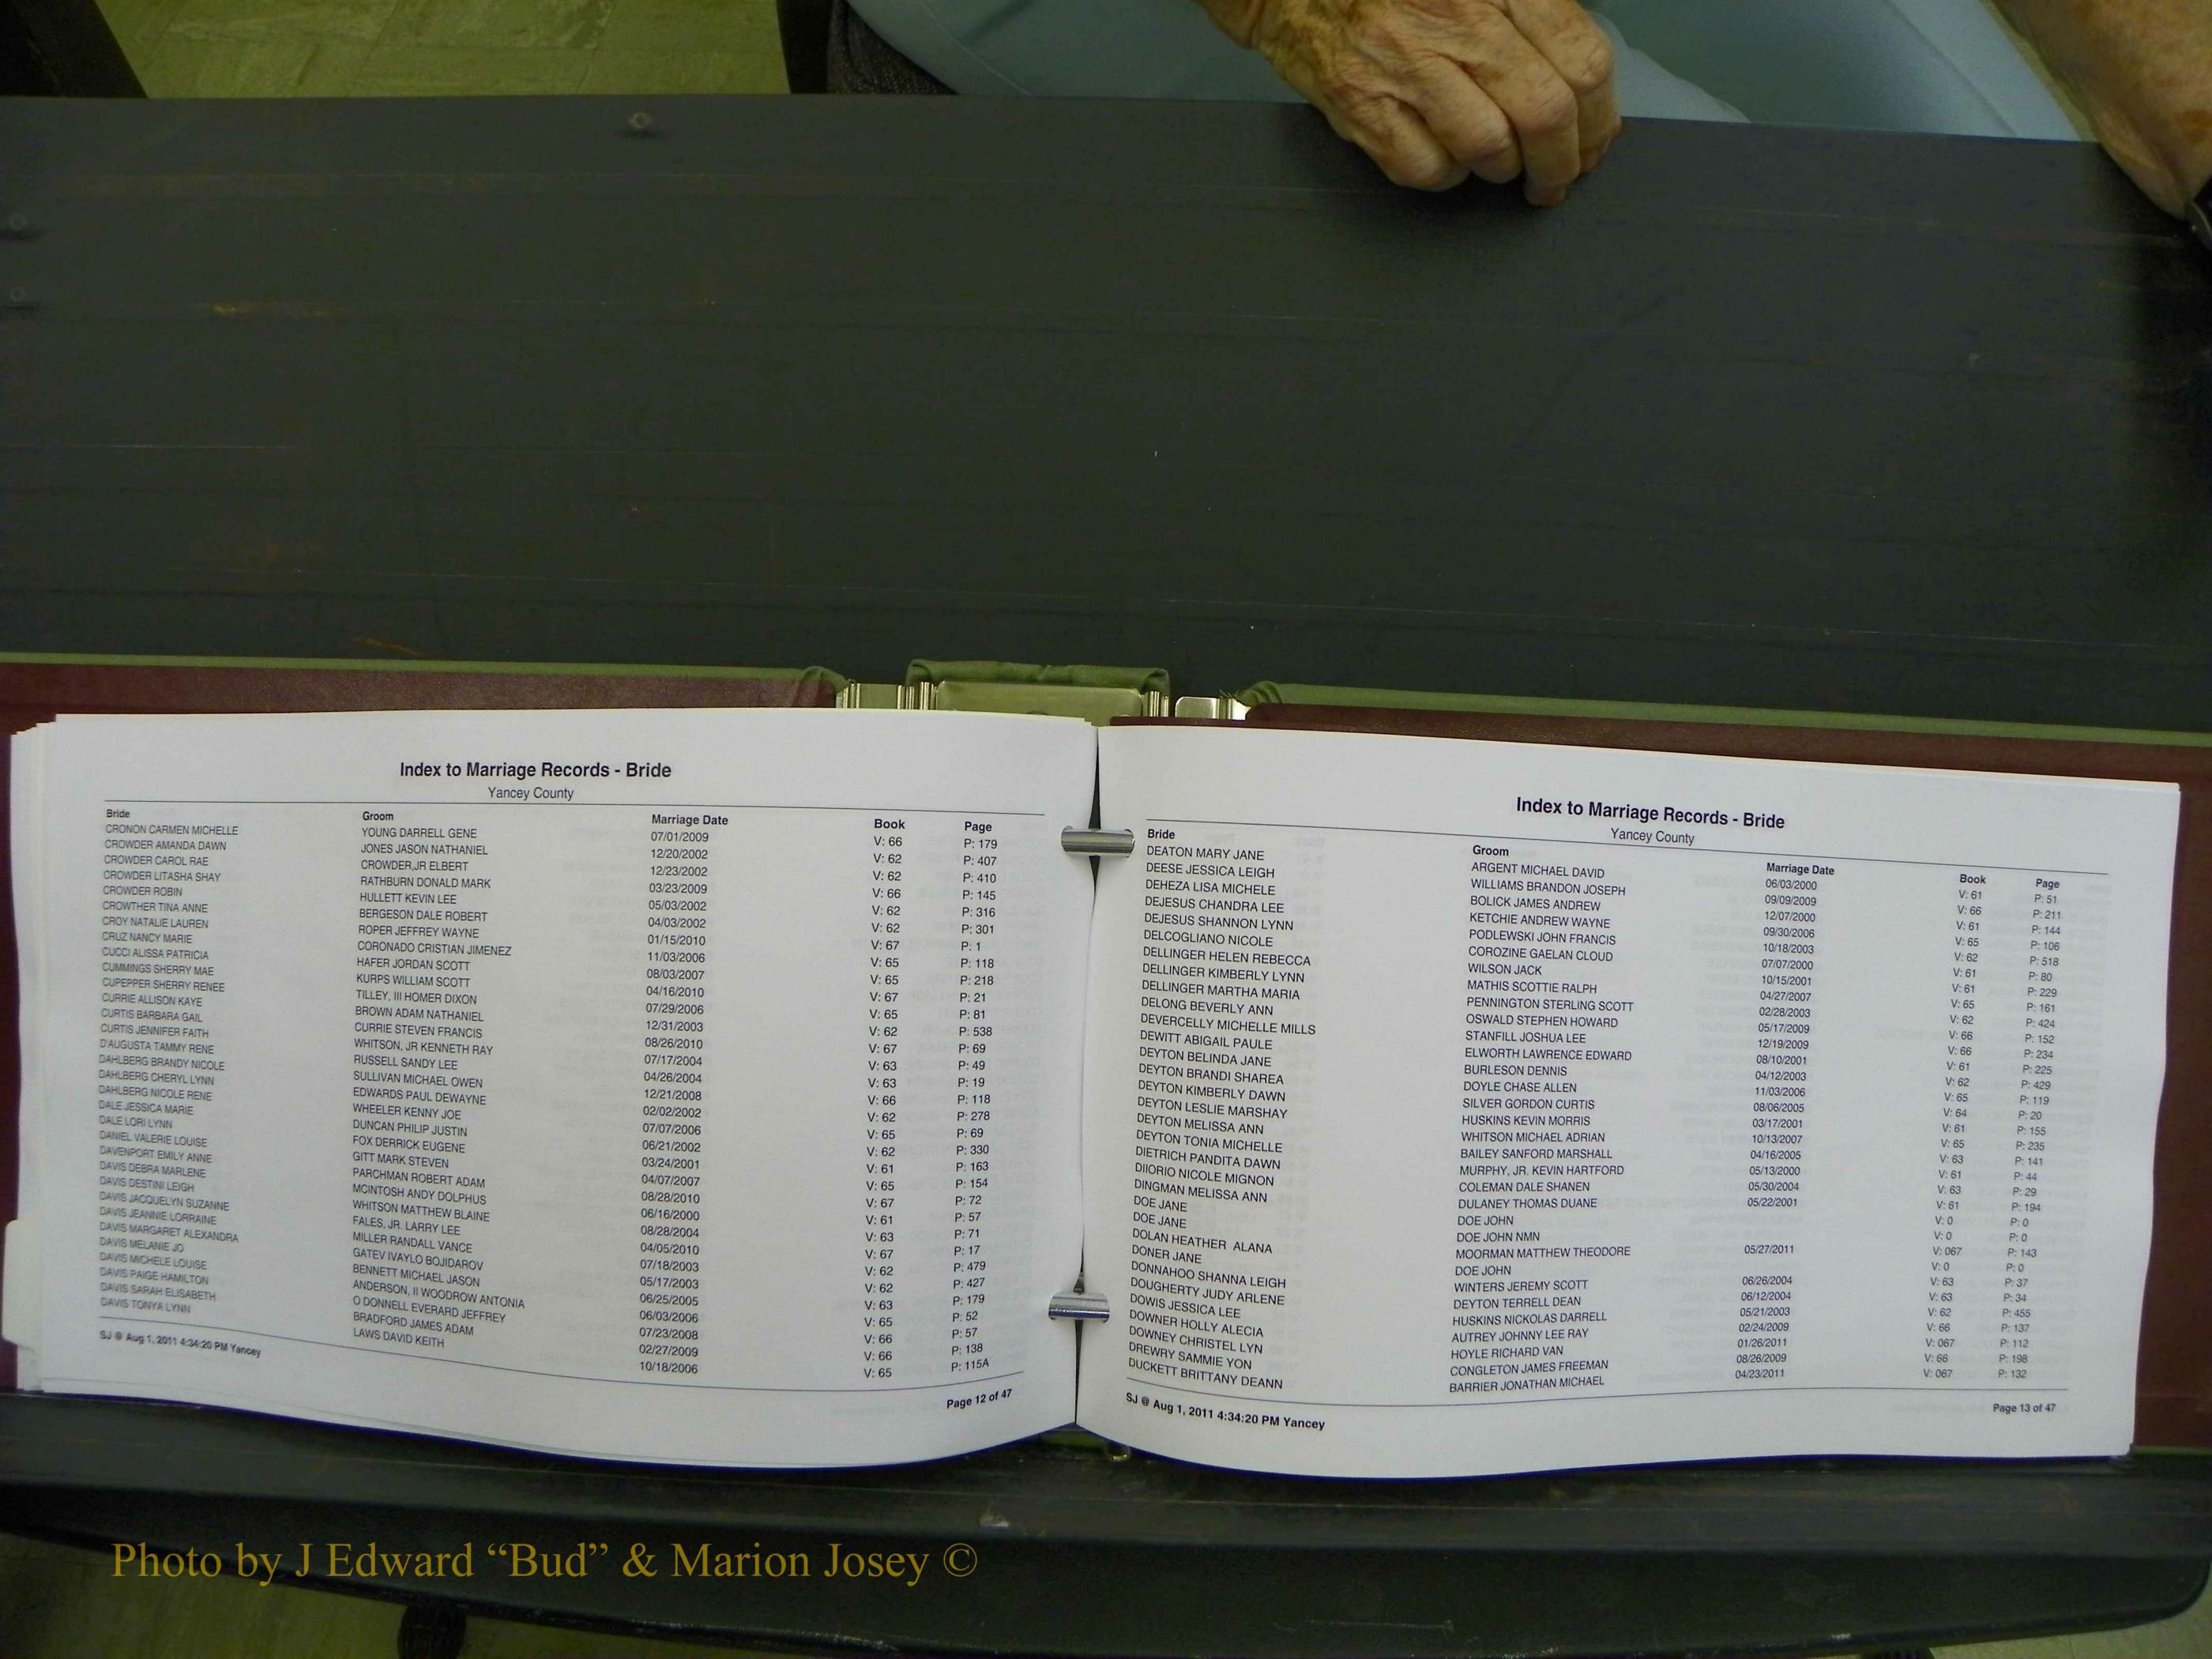 Index to Marriage Records - Bride
Yancey County
Bride Groom Marriage Date Book Page
CRONON CARMEN MICHELLE YOUNG DARRELL GENE 07/01/2009 V: 66 P: 179
CROWDER AMANDA DAWN JONES JASON NATHANIEL 12/20/2002 V: 62 P: 407
CROWDER CAROL RAE CROWDER,JR ELBERT 12/23/2002 V: 62 P: 410
CROWDER LITASHA SHAY RATHBURN DONALD MARK 03/23/2009 V: 66 P: 145
CROWDER ROBIN HULLETT KEVIN LEE 05/03/2002 V: 62 P: 316
CROWTHER TINA ANNE BERGESON DALE ROBERT 04/03/2002 V: 62 P: 301
CROY NATALIE LAUREN ROPER JEFFREY WAYNE 01/15/2010 V: 67 P: 1
CRUZ NANCY MARIE CORONADO CRISTIAN JIMENEZ 11/03/2006 V: 65 P: 118
CUCCI ALISSA PATRICIA HAFER JORDAN SCOTT 08/03/2007 V: 65 P: 218
CUMMINGS SHERRY MAE KURPS WILLIAM SCOTT 04/16/2010 V: 67 P: 21
CUPEPPER SHERRY RENEE TILLEY, III HOMER DIXON 07/29/2006 V: 65 P: 81
CURRIE ALLISON KAYE BROWN ADAM NATHANIEL 12/31/2003 V: 62 P: 538
CURTIS BARBARA GAIL CURRIE STEVEN FRANCIS 08/26/2010 V: 67 P: 69
CURTIS JENNIFER FAITH WHITSON, JR KENNETH RAY 07/17/2004 V: 63 P: 49
D'AUGUSTA TAMMY RENE RUSSELL SANDY LEE 04/26/2004 V: 63 P: 19
DAHLBERG BRANDY NICOLE SULLIVAN MICHAEL OWEN 12/21/2008 V: 66 P: 118
DAHLBERG CHERYL LYNN EDWARDS PAUL DEWAYNE 02/02/2002 V: 62 P: 278
DAHLBERG NICOLE RENE WHEELER KENNY JOE 07/07/2006 V: 65 P: 69
DALE JESSICA MARIE DUNCAN PHILIP JUSTIN 06/21/2002 V: 62 P: 330
DALE LORI LYNN FOX DERRICK EUGENE 03/24/2001 V: 61 P: 163
DANIEL VALERIE LOUISE GITT MARK STEVEN 04/07/2007 V: 65 P: 154
DAVENPORT EMILY ANNE PARCHMAN ROBERT ADAM 08/28/2010 V: 67 P: 72
DAVIS DEBRA MARLENE MCINTOSH ANDY DOLPHUS 06/16/2000 V: 61 P: 57
DAVIS DESTINI LEIGH WHITSON MATTHEW BLAINE 08/28/2004 V: 63 P: 71
DAVIS JACQUELYN SUZANNE FALES, JR. LARRY LEE 04/05/2010 V: 67 P: 17
DAVIS JEANNIE LORRAINE MILLER RANDALL VANCE 07/18/2003 V: 62 P: 479
DAVIS MARGARET ALEXANDRA GATEV IVAYLO BOJIDAROV 05/17/2003 V: 62 P: 427
DAVIS MELANIE JO BENNETT MICHAEL JASON 06/25/2005 V: 63 P: 179
DAVIS MICHELE LOUISE ANDERSON, II WOODROW ANTONIA 06/03/2006 V: 65 P: 52
DAVIS PAIGE HAMILTON O DONNELL EVERARD JEFFREY 07/23/2008 V: 66 P: 57
DAVIS SARAH ELISABETH BRADFORD JAMES ADAM 02/27/2009 V: 66 P: 138
DAVIS TONYA LYNN LAWS DAVID KEITH 10/18/2006 V: 65 P: 115A
SJ @ Aug 1, 2011 4:34:20 PM Yancey Page 12 of 47
Index to Marriage Records - Bride
Yancey County
Bride Groom Marriage Date Book Page
DEATON MARY JANE ARGENT MICHAEL DAVID 06/03/2000 V: 61 P: 51
DEESE JESSICA LEIGH WILLIAMS BRANDON JOSEPH 09/09/2009 V: 66 P: 211
DEHEZA LISA MICHELE BOLICK JAMES ANDREW 12/07/2000 V: 61 P: 144
DEJESUS CHANDRA LEE KETCHIE ANDREW WAYNE 09/30/2006 V: 65 P: 106
DEJESUS SHANNON LYNN PODLEWSKI JOHN FRANCIS 10/18/2003 V: 62 P: 518
DELCOGLIANO NICOLE COROZINE GAELAN CLOUD 07/07/2000 V: 61 P: 80
DELLINGER HELEN REBECCA WILSON JACK 10/15/2001 V: 61 P: 229
DELLINGER KIMBERLY LYNN MATHIS SCOTTIE RALPH 04/27/2007 V: 65 P: 161
DELLINGER MARTHA MARIA PENNINGTON STERLING SCOTT 02/28/2003 V: 62 P: 424
DELONG BEVERLY ANN OSWALD STEPHEN HOWARD 05/17/2009 V: 66 P: 152
DEVERCELLY MICHELLE MILLS STANFILL JOSHUA LEE 12/19/2009 V: 66 P: 234
DEWITT ABIGAIL PAULE ELWORTH LAWRENCE EDWARD 08/10/2001 V: 61 P: 225
DEYTON BELINDA JANE BURLESON DENNIS 04/12/2003 V: 62 P: 429
DEYTON BRANDI SHAREA DOYLE CHASE ALLEN 11/03/2006 V: 65 P: 119
DEYTON KIMBERLY DAWN SILVER GORDON CURTIS 08/06/2005 V: 64 P: 20
DEYTON LESLIE MARSHAY HUSKINS KEVIN MORRIS 03/17/2001 V: 61 P: 155
DEYTON MELISSA ANN WHITSON MICHAEL ADRIAN 10/13/2007 V: 65 P: 235
DEYTON TONIA MICHELLE BAILEY SANFORD MARSHALL 04/16/2005 V: 63 P: 141
DIETRICH PANDITA DAWN MURPHY, JR. KEVIN HARTFORD 05/13/2000 V: 61 P: 44
DIIORIO NICOLE MIGNON COLEMAN DALE SHANEN 05/30/2004 V: 63 P: 29
DINGMAN MELISSA ANN DULANEY THOMAS DUANE 05/22/2001 V: 61 P: 194
DOE JANE DOE JOHN V: 0 P: 0
DOE JANE DOE JOHN NMN V: 0 P: 0
DOLAN HEATHER ALANA MOORMAN MATTHEW THEODORE 05/27/2011 V: 067 P: 143
DONER JANE DOE JOHN V: 0 P: 0
DONNAHOO SHANNA LEIGH WINTERS JEREMY SCOTT 06/26/2004 V: 63 P: 37
DOUGHERTY JUDY ARLENE DEYTON TERRELL DEAN 06/12/2004 V: 63 P: 34
DOWIS JESSICA LEE HUSKINS NICKOLAS DARRELL 05/21/2003 V: 62 P: 455
DOWNER HOLLY ALECIA AUTREY JOHNNY LEE RAY 02/24/2009 V: 66 P: 137
DOWNEY CHRISTEL LYN HOYLE RICHARD VAN 01/26/2011 V: 067 P: 112
DREWRY SAMMIE YON CONGLETON JAMES FREEMAN 08/26/2009 V: 66 P: 198
DUCKETT BRITTANY DEANN BARRIER JONATHAN MICHAEL 04/23/2011 V: 067 P: 132
SJ @ Aug 1, 2011 4:34:20 PM Yancey Page 13 of 47
Photo by J Edward “Bud” & Marion Josey ©